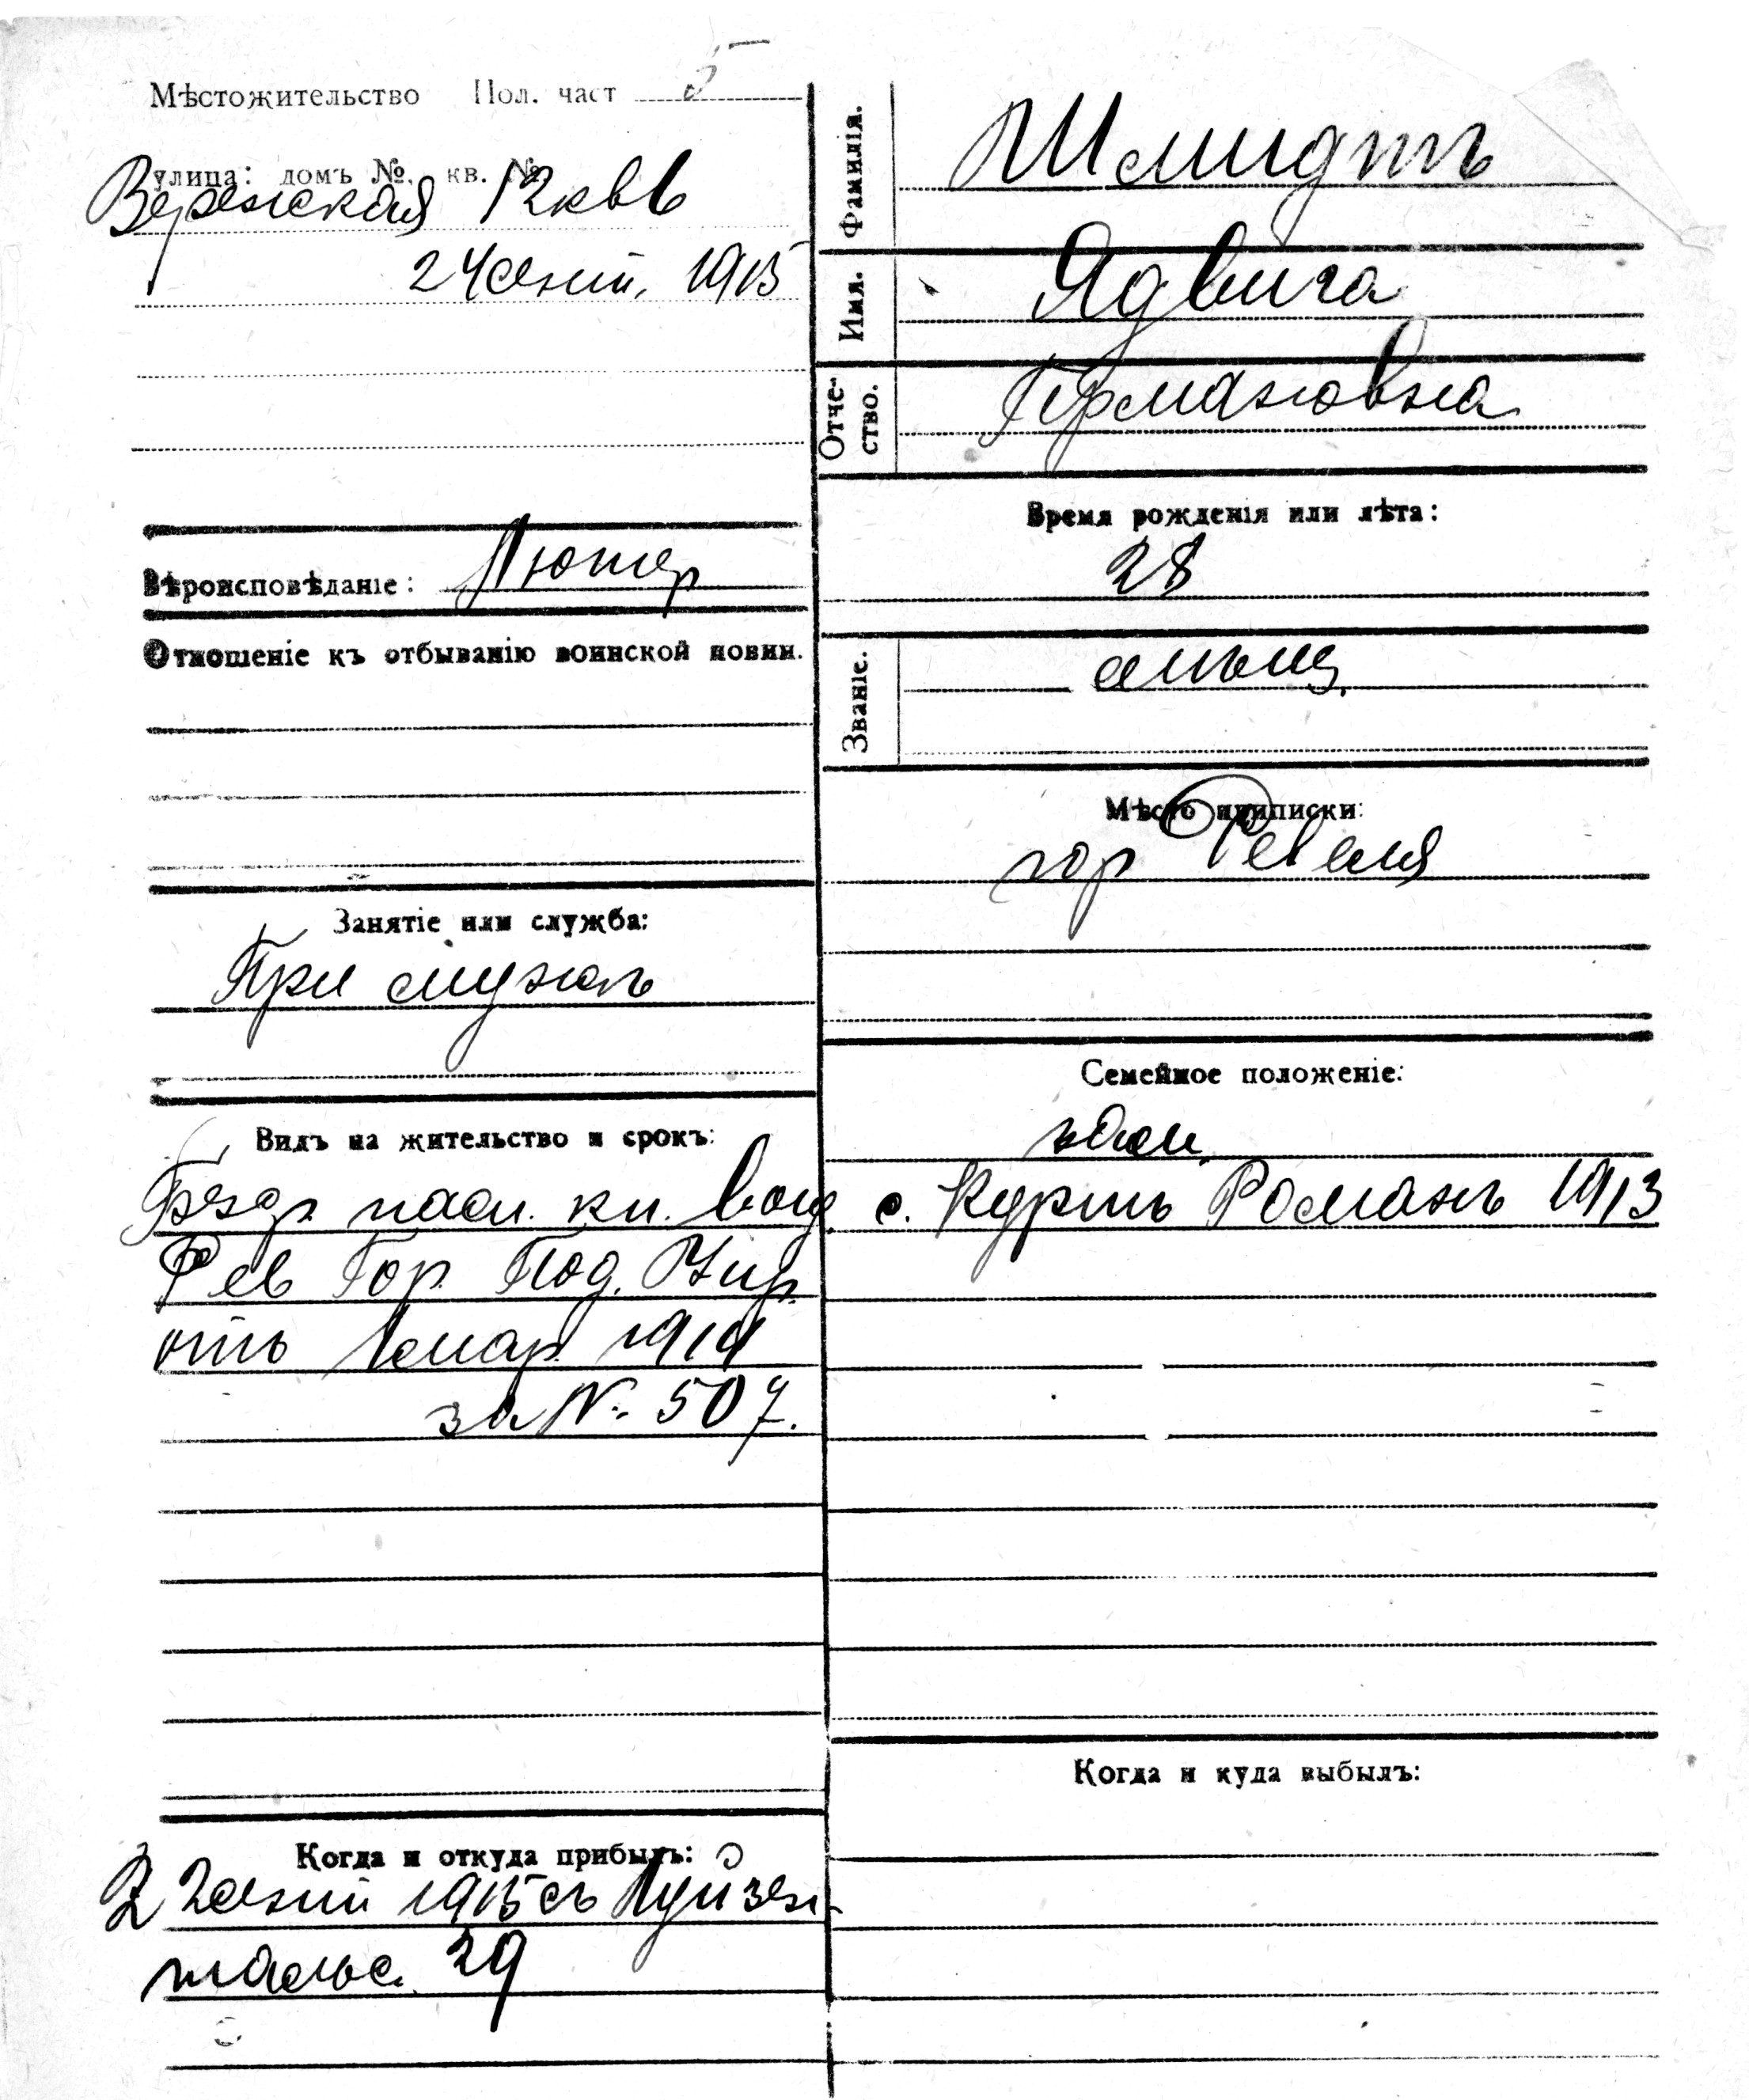 Мѣстожительство Пол. част 5
улица: домъ №. кв. №
12 кв 6
24 сент. 1915
Вѣроисповѣданіе: Лютер
Отношеніе къ отбыванію воинской повин.
Занятіе или служба:
При мужѣ
Видъ на жительство и срокъ:
Безср. пасп. кн. выд.
Рев Гор. Под. Упр.
отъ 1 мар. 1914
за № 507.
Когда и откуда прибылъ:
1915 съ Луйзен-
тальс. 29
Фамилія. Шмидтъ
Имя. Ядвига
Отче-ство. Германовна
Время рожденія или лѣта:
28
Званіе. мѣщ.
Мѣсто приписки:
гор Ревеля
Семейное положеніе:
зам.
с. Куртъ Романъ 1913
Когда и куда выбылъ: